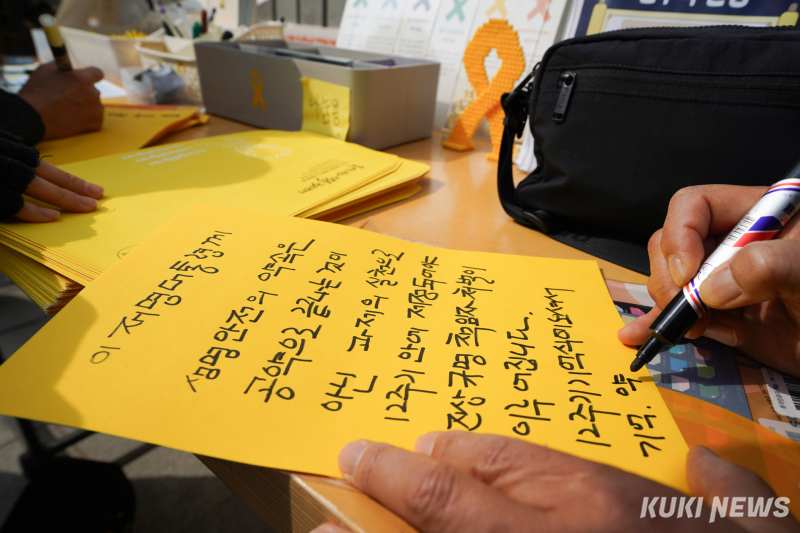 이재명대통령께
생명안전의 약속은
공약으로 끝나는 것이
아닌 과제의 실천으로
12주기 안에 제정되어야
진상규명 책임자처벌이
이루어집니다.
12주기 기억식에
기억. 약
KUKI NEWS